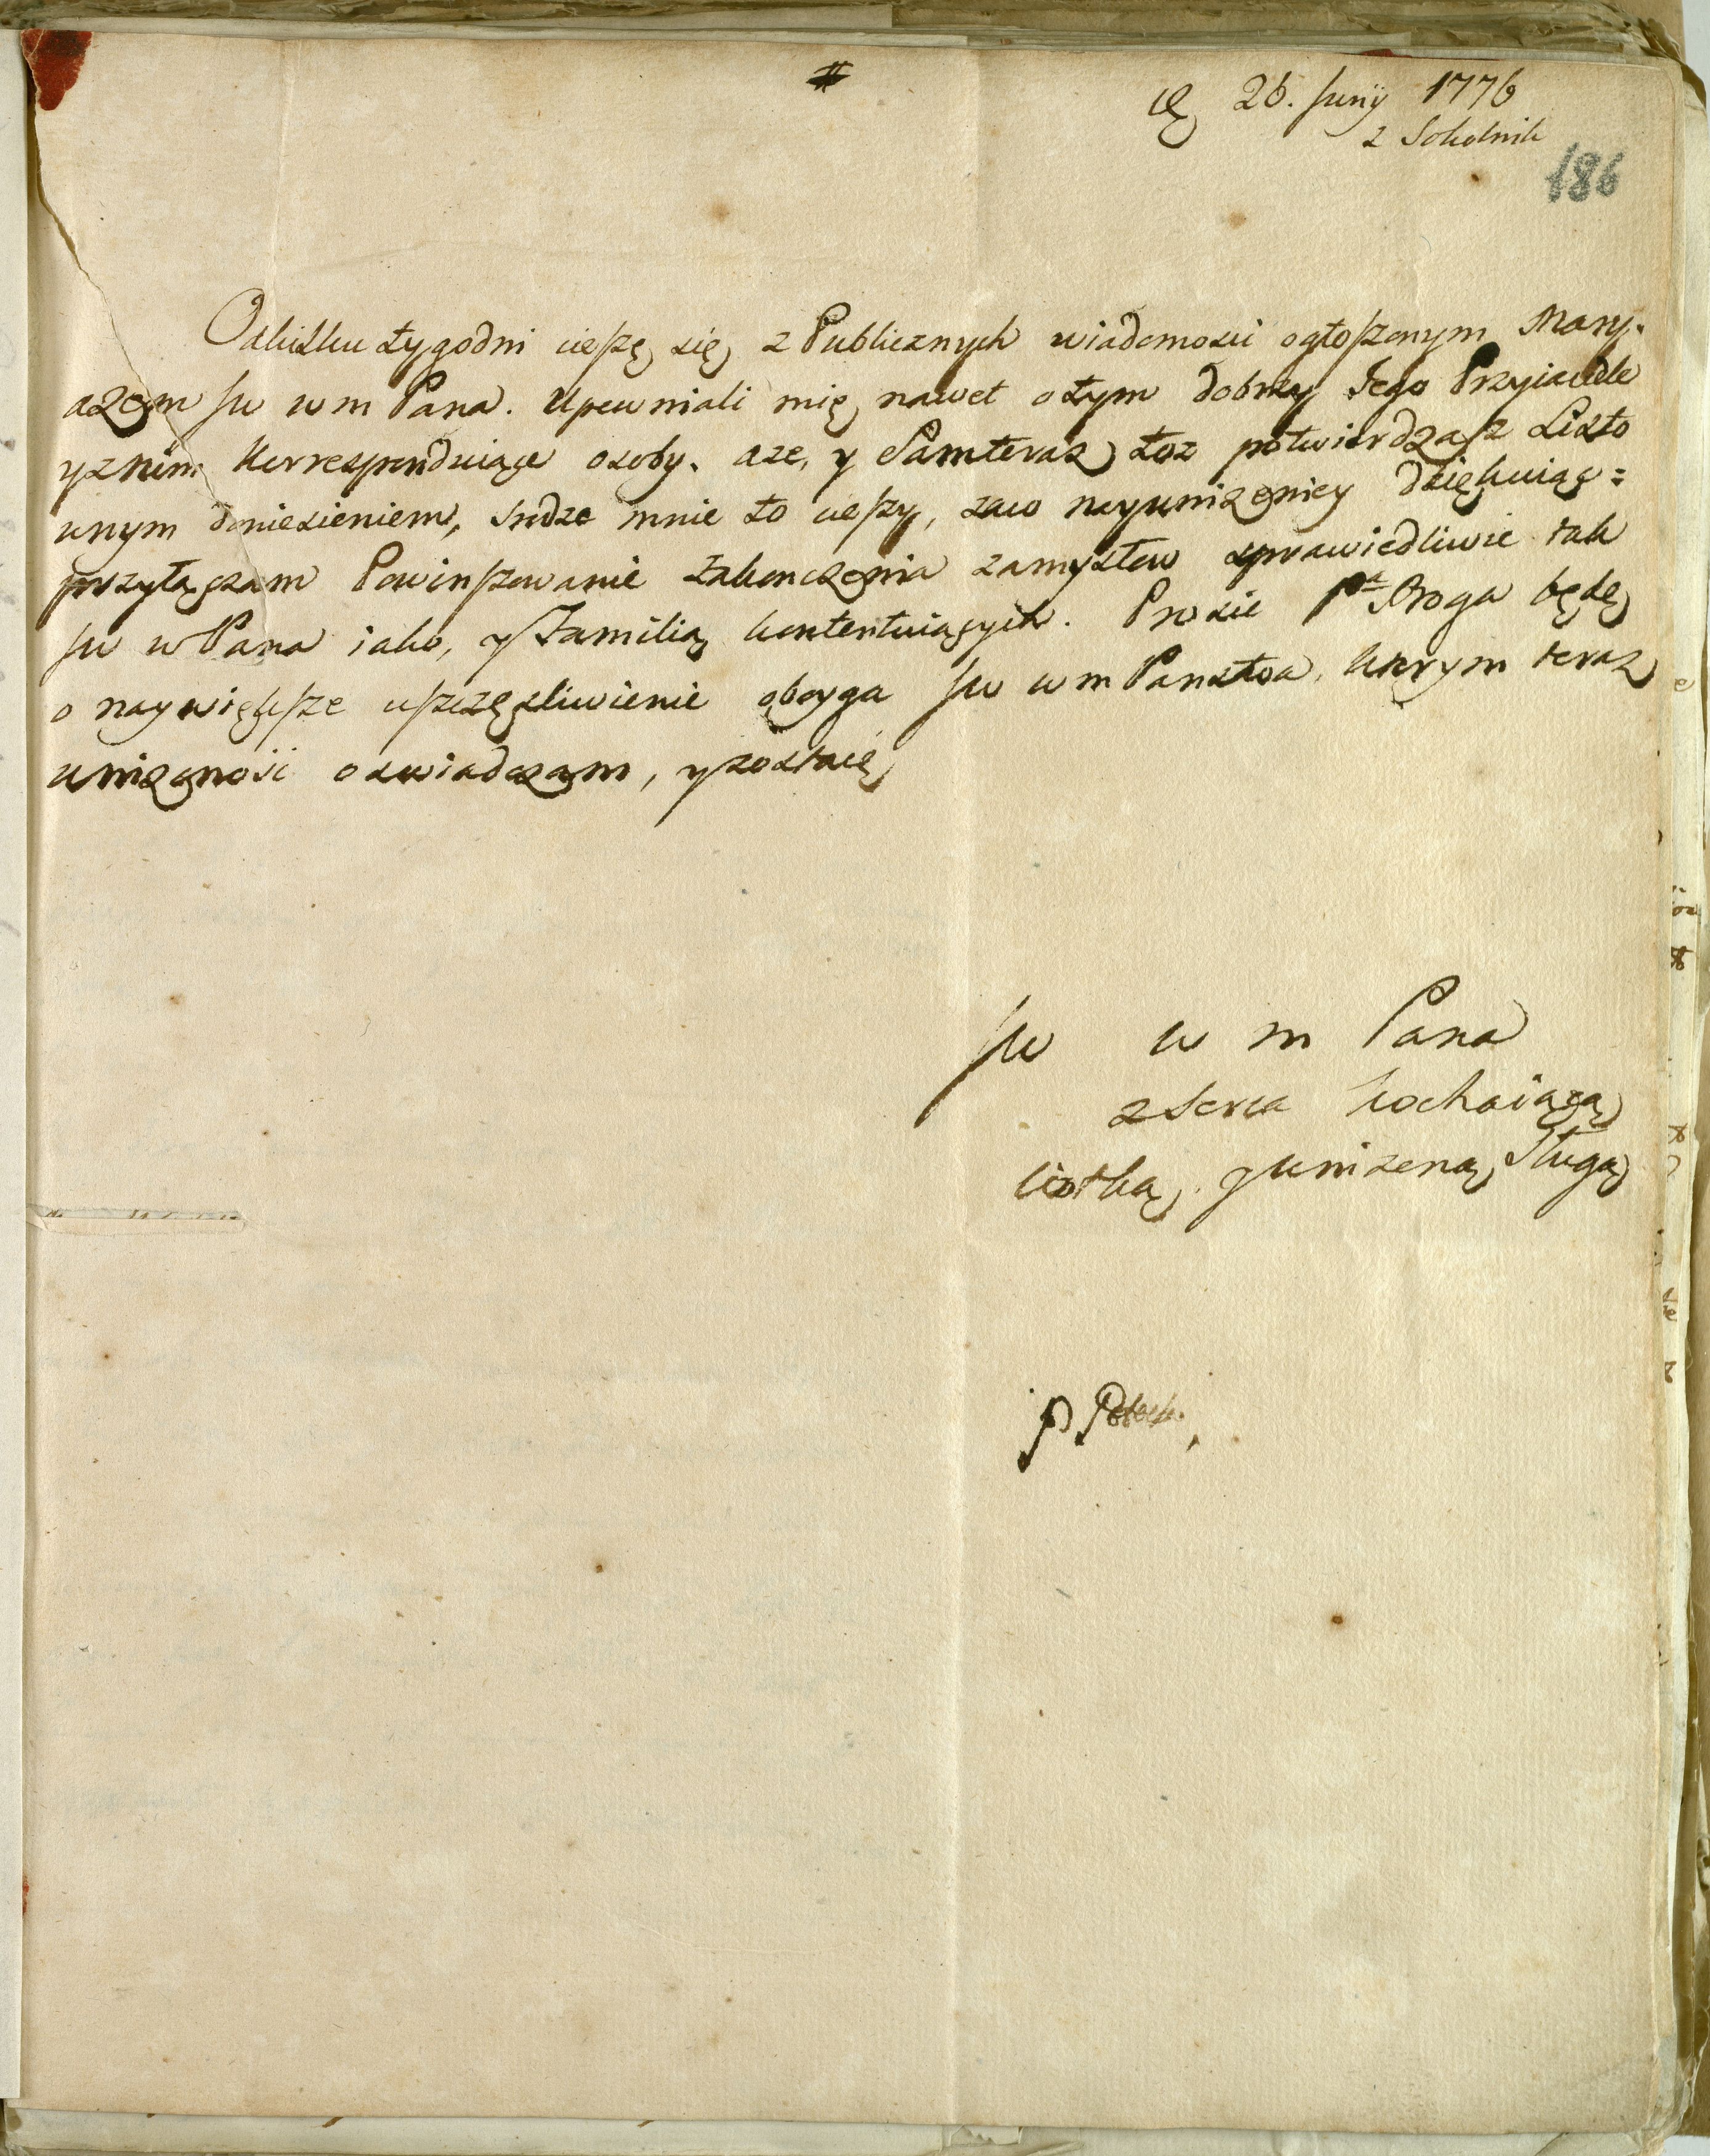 26. Junÿ 1776
z Sokolnik
186
Odkilku tygodni ciesżę się z Publicznych wiadomosci ogłoszonym Mary-
ażem JW WM Pana. Upewniali mię nawet otym dobrzy Jego Przyiaciele
yznim korrespenduiące osoby. aże, y Samteraz toż potwierdzasz Listo
wnym doniesieniem, Srdze mnie to cieszy, zaco nayunizeniey dziękuiąc=
przyłączam Powinszowanie zakonczenia zamysłow sprawiedliwie tak
JW WPana iako, y Familią kontentuiących. Prosic Pa Boga będę
o naywiększe uszczęsliwienie oboyga JW WM Panstwa, ktorym teraz
unizonosć oswiadczam, yzostaię
JW W M Pana
zserca kochaiącą
ciotką, yunizoną Sługą
P Potocka